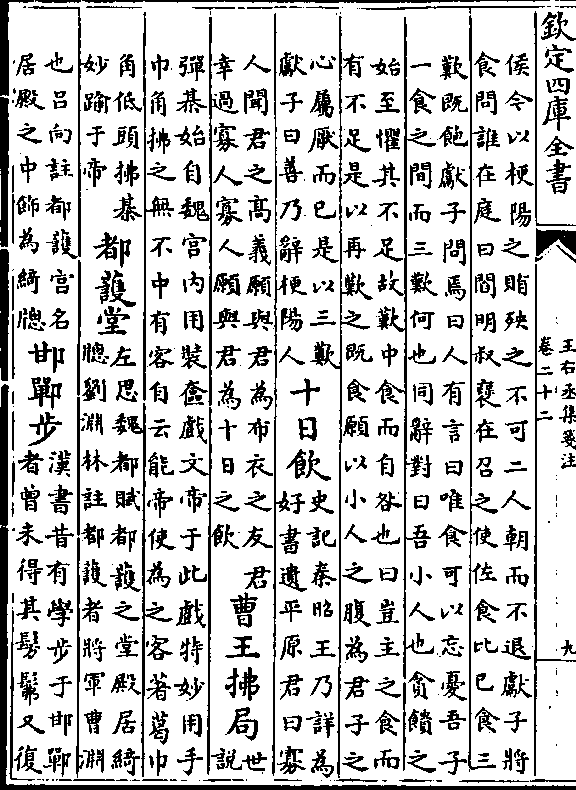 欽定四庫全書
王右丞集箋注
卷二十二
九
侯令以梗陽之賄殃之不可二人朝而不退獻子將
食問誰在庭曰閻明叔襃在召之使佐食比已食三
歎既飽獻子問焉曰人有言曰唯食可以忘憂吾子
一食之間而三歎何也同辭對曰吾小人也貪饋之
始至懼其不足故歎中食而自咎也曰豈主之食而
有不足是以再歎之既食願以小人之腹為君子之
心屬厭而已是以三歎
獻子曰善乃辭梗陽人
十日飲
史記秦昭王乃詳為
好書遺平原君曰寡
人聞君之高義願與君為布衣之友君
幸過寡人寡人願與君為十日之飲
曹王拂局
世
說
彈棊始自魏宮内用裝奩戲文帝于此戲特妙用手
巾角拂之無不中有客自云能帝使為之客著葛巾
角低頭拂棊
妙踰于帝
都護堂
左思魏都賦都護之堂殿居綺
牕劉淵林註都護者將軍曹淵
也吕向註都護宫名
居殿之中飾為綺牕
邯鄲步
漢書昔有學步于邯鄲
者曾未得其髣髴又復